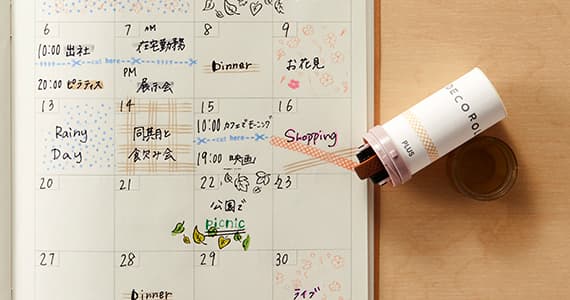 6
7 AM
8
9
10:00 出社
在宅勤務
Dinner
お花見
cut here
cut here
PM
20:00 ピラティス
展示会
13
14
15
16
Rainy
Day
同期と
飲み会
10:00 カフェでモーニング
cut here
19:00 映画
Shopping
20
21
22
23
公園で
picnic
27
28
29
30
Dinner
ライブ
DECORO
PLUS